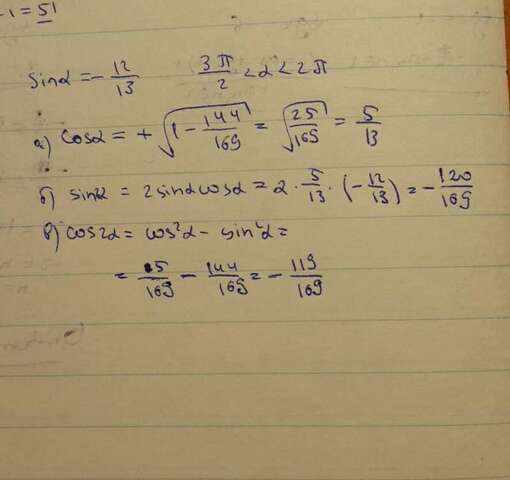 -1 = 51
sinα = - 12/13   3π/2 < α < 2π
а) cosα = + √(1 - 144/169) = √(25/169) = 5/13
б) sin2α = 2sinαcosα = 2 · 5/13 · (-12/13) = - 120/169
в) cos2α = cos²α - sin²α =
= 25/169 - 144/169 = - 119/169